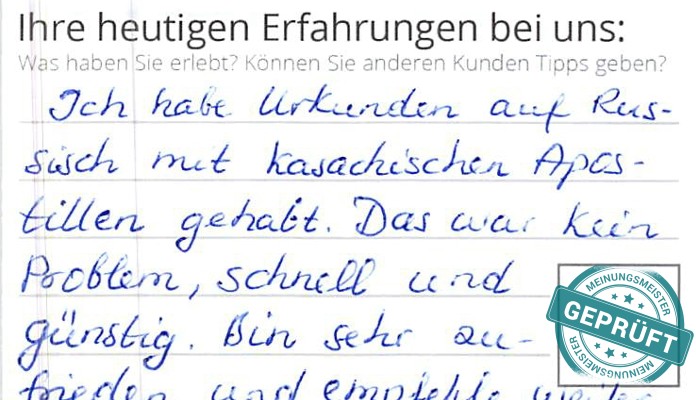 Ihre heutigen Erfahrungen bei uns:
Was haben Sie erlebt? Können Sie anderen Kunden Tipps geben?
Ich habe Urkunden auf Rus-
sisch mit kasachischen Apos-
tillen gehabt. Das war kein
Problem, schnell und
günstig. Bin sehr zu-
frieden und empfehle weiter
MEINUNGSMEISTER
GEPRÜFT
MEINUNGSMEISTER